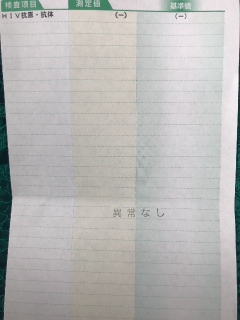 検査項目 測定値 基準値
HIV抗原・抗体 (ー) (ー)
異常なし